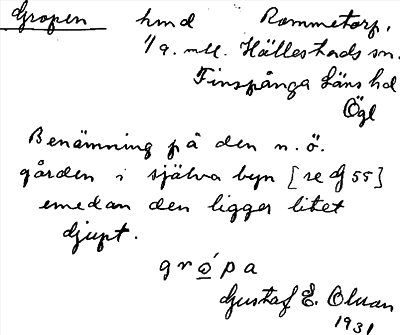 Gropen hmd Rommetorp,
1/9. mtl. Hällestads sn.
Finspånga läns hd
Ögl
Benämning på den n.ö.
gården i själva byn [se G 55]
emedan den ligger litet
djupt.
grópa
Gustaf E. Olsson
1931